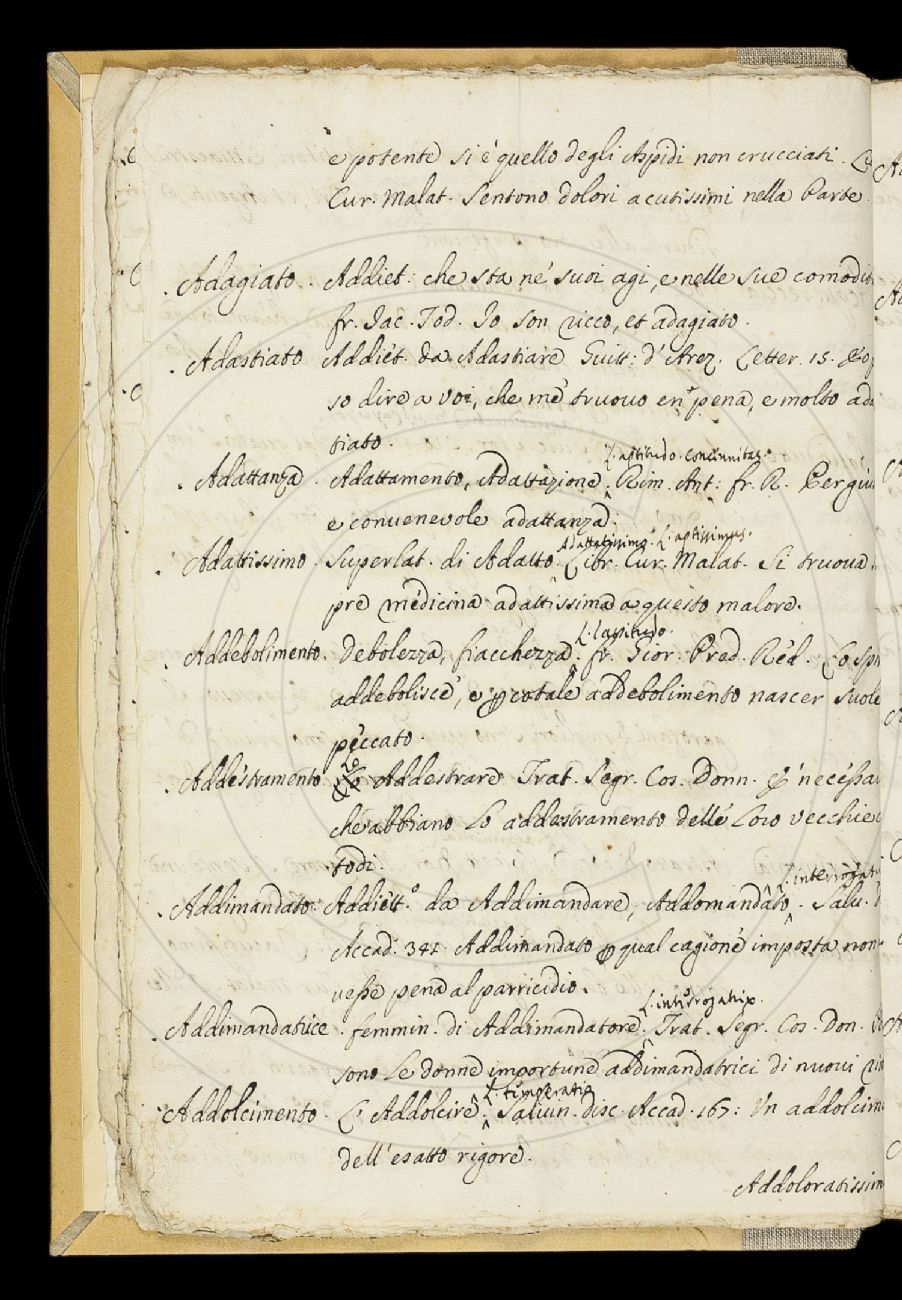 e potente si è quello degli Aspidi non crucciati.
Cur. Malat. Sentono dolori acutissimi nella Parte
Adagiato. Addiet: che sta ne' suoi agi, e nelle sue
fr. Jac. Tod. Io son ricco, et adagiato.
Adastiato Addiet. da Adastiare Guitt: d'Arez. Letter. 15.
so dire a voi, che me truovo en pena, e molto
tiato.
L. aptitudo. concinnitas.
Adattanza. Adattamento, Adattazione. Rim. Ant: fr. R.
e convenevole adattanza.
Adattatissimo. L. aptissimus.
Adattissimo. Superlat. di Adatto. Libr. Cur. Malat. Si truova
pre medicina adattissima a questo malore.
L. lassitudo.
Addebolimento. Debolezza, fiacchezza. fr. Gior. Pred. Red. Lo
addebolisce, e ꝑ cotale addebolimento nascer suole
peccato.
Lo
Addestramento. Addestrare Trat. Segr. Cos. Donn.
che abbiano Lo addestramento delle Loro
todi.
Addimandato. Addiett.º da Addimandare, Addomandato. Salv.
Accad. 341. Addimandato ꝑ qual cagione imposta non
vesse pena al parricidio.
Addimandatrice. femmin. di Addimandatore. Trat. Segr. Cos. Don.
sono Le donne importune addimandatrici di nuovi
Addolcimento. L' Addolcire. Salvin. disc. Accad. 167: Un
dell'esatto rigore.